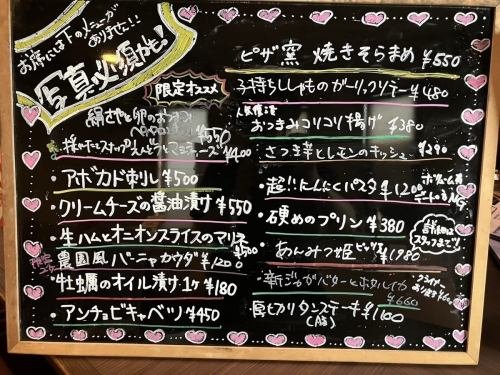 お席には下のメニューが
ありません!!
写真必須かも!
限定オススメ
絹さやと卵の
¥550
スナップえんどうとマヨチーズ ¥400
・アボカド刺し ¥500
・クリームチーズの醤油漬け ¥550
・生ハムとオニオンスライスのマリネ
¥500
農園風バーニャカウダ ¥1200
・牡蠣のオイル漬け 1ケ ¥180
・アンチョビキャベツ ¥450
ピザ窯 焼きそらまめ ¥550
子持ちししゃものガーリックソテー ¥480
おつまみコリコリ揚げ ¥380
さつま芋とレモンのキッシュ ¥290
・超!!にんにくパスタ ¥1200
デートはNG
・硬めのプリン ¥380
詳細は
スタッフまで!
・あんみつ姫 ¥1980
・新じゃがバターとホタルイカ
¥660
タンステーキ ¥1100